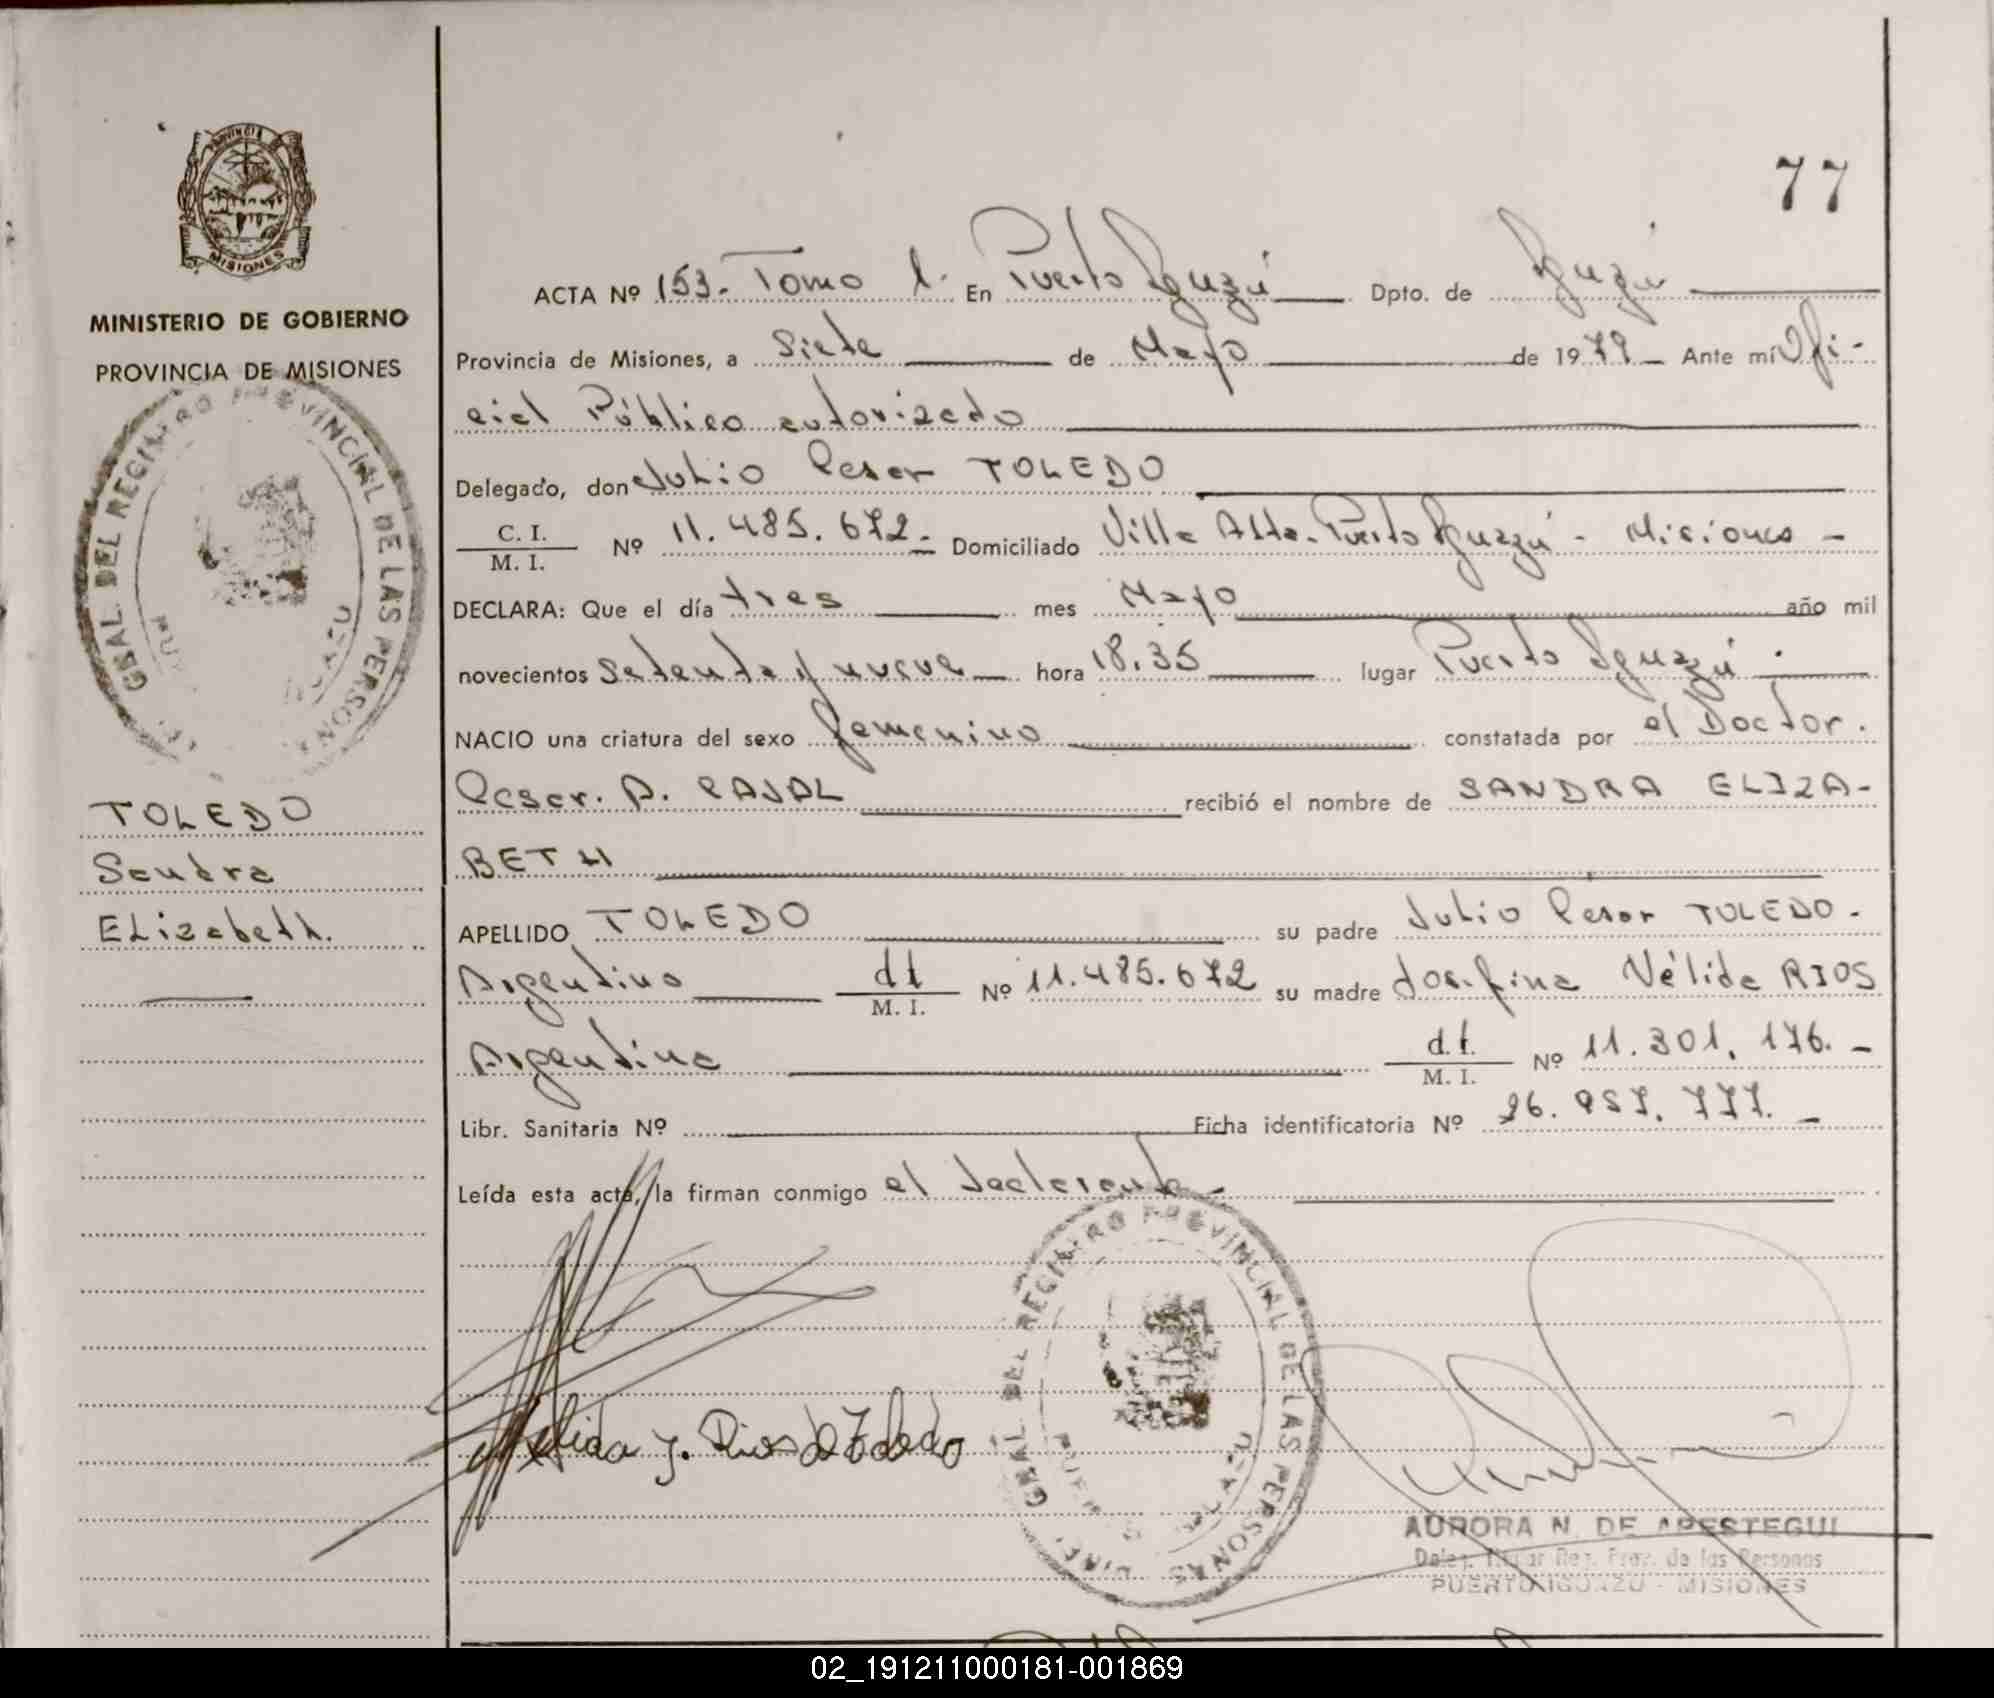 PROVINCIA
MISIONES
MINISTERIO DE GOBIERNO
PROVINCIA DE MISIONES
GRAL. DEL REGISTRO PROVINCIAL DE LAS PERSONAS
TOLEDO
Sandra
Elizabeth.
77
ACTA Nº 153. Tomo I. En Puerto Iguazú Dpto. de Iguazú
Provincia de Misiones, a Siete de Mayo de 1979 Ante mí Ofi-
cial Público autorizado
Delegado, don Julio Cesar TOLEDO
C. I.
M. I. Nº 11.485.672.- Domiciliado Villa Alta. Puerto Iguazú - Misiones -
DECLARA: Que el día tres mes Mayo año mil
novecientos setenta y nueve hora 18.35 lugar Puerto Iguazú.
NACIO una criatura del sexo femenino constatada por el Doctor.
Cesar. A. CAJAL recibió el nombre de SANDRA ELIZA-
BETH
APELLIDO TOLEDO su padre Julio Cesar TOLEDO.
Argentino M. I. Nº 11.485.672 su madre Josefina Nélida RIOS
Argentina M. I. Nº 11.301.176.-
Libr. Sanitaria Nº Ficha identificatoria Nº 26.957.777.-
Leída esta acta, la firman conmigo el declarante-
Nelida J. Rios de Toledo
GRAL. DEL REGISTRO PROVINCIAL DE LAS PERSONAS
AURORA N. DE ARESTEGUI
Deleg. Titular Reg. Prov. de las Personas
PUERTO IGUAZU - MISIONES
02_191211000181-001869